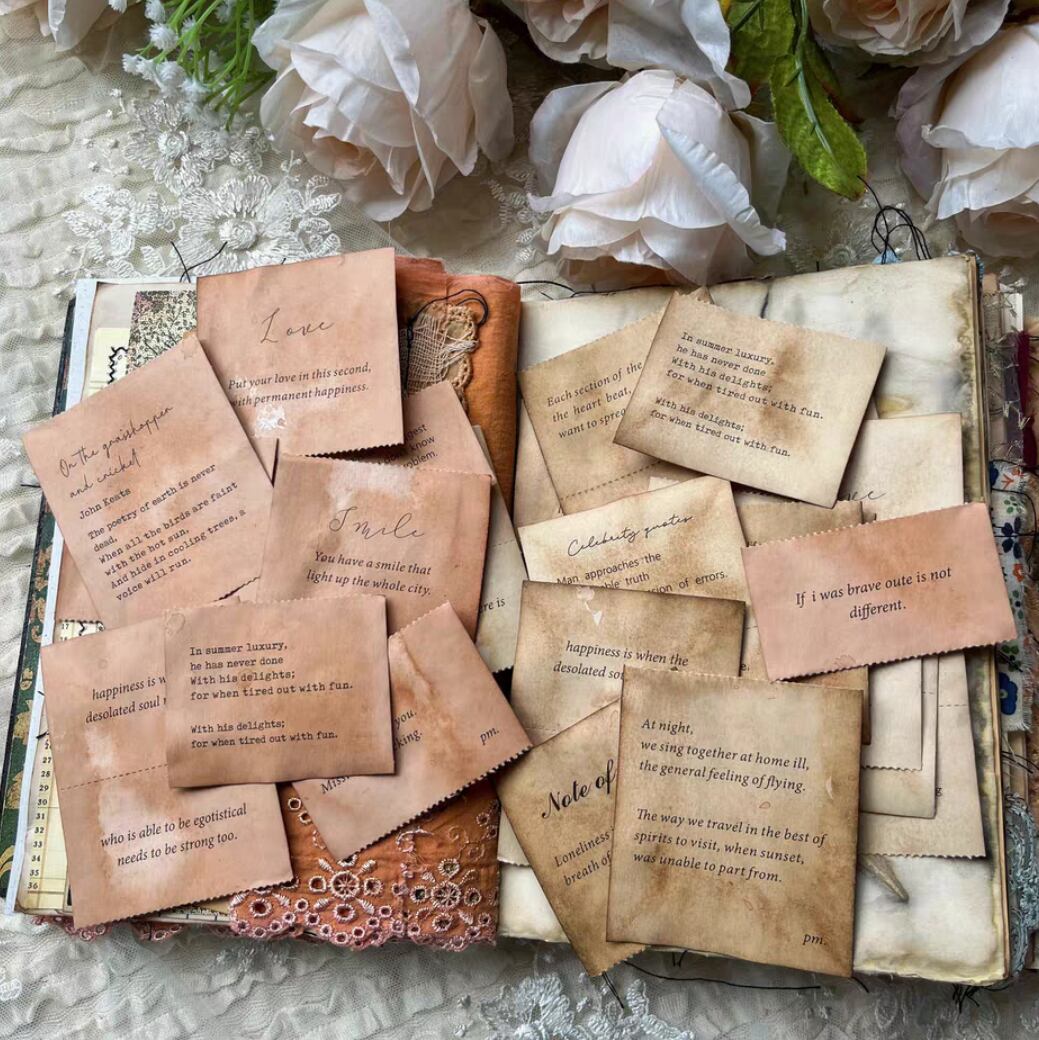 Love
Put your love in this second,
with permanent happiness.
On the grasshopper
and cricket
John Keats
The poetry of earth is never
dead,
When all the birds are faint
with the hot sun,
And hide in cooling trees, a
voice will run.
know
Smile
You have a smile that
light up the whole city.
is
In summer luxury,
he has never done
With his delights;
for when tired out with fun.
With his delights;
for when tired out with fun.
happiness is
desolated soul
who is able to be egotistical
needs to be strong too.
you.
pm.
Each section of the
the heart beat,
want to
In summer luxury,
he has never done
With his delights;
for when tired out with fun.
With his delights;
for when tired out with fun.
Celebrity quotes
Man approaches the
truth
of errors.
If i was brave oute is not
different.
happiness is when the
desolated
Note of
Loneliness
breath of
At night,
we sing together at home ill,
the general feeling of flying.
The way we travel in the best of
spirits to visit, when sunset,
was unable to part from.
pm.
17
27
28
29
30
31
32
33
34
35
36